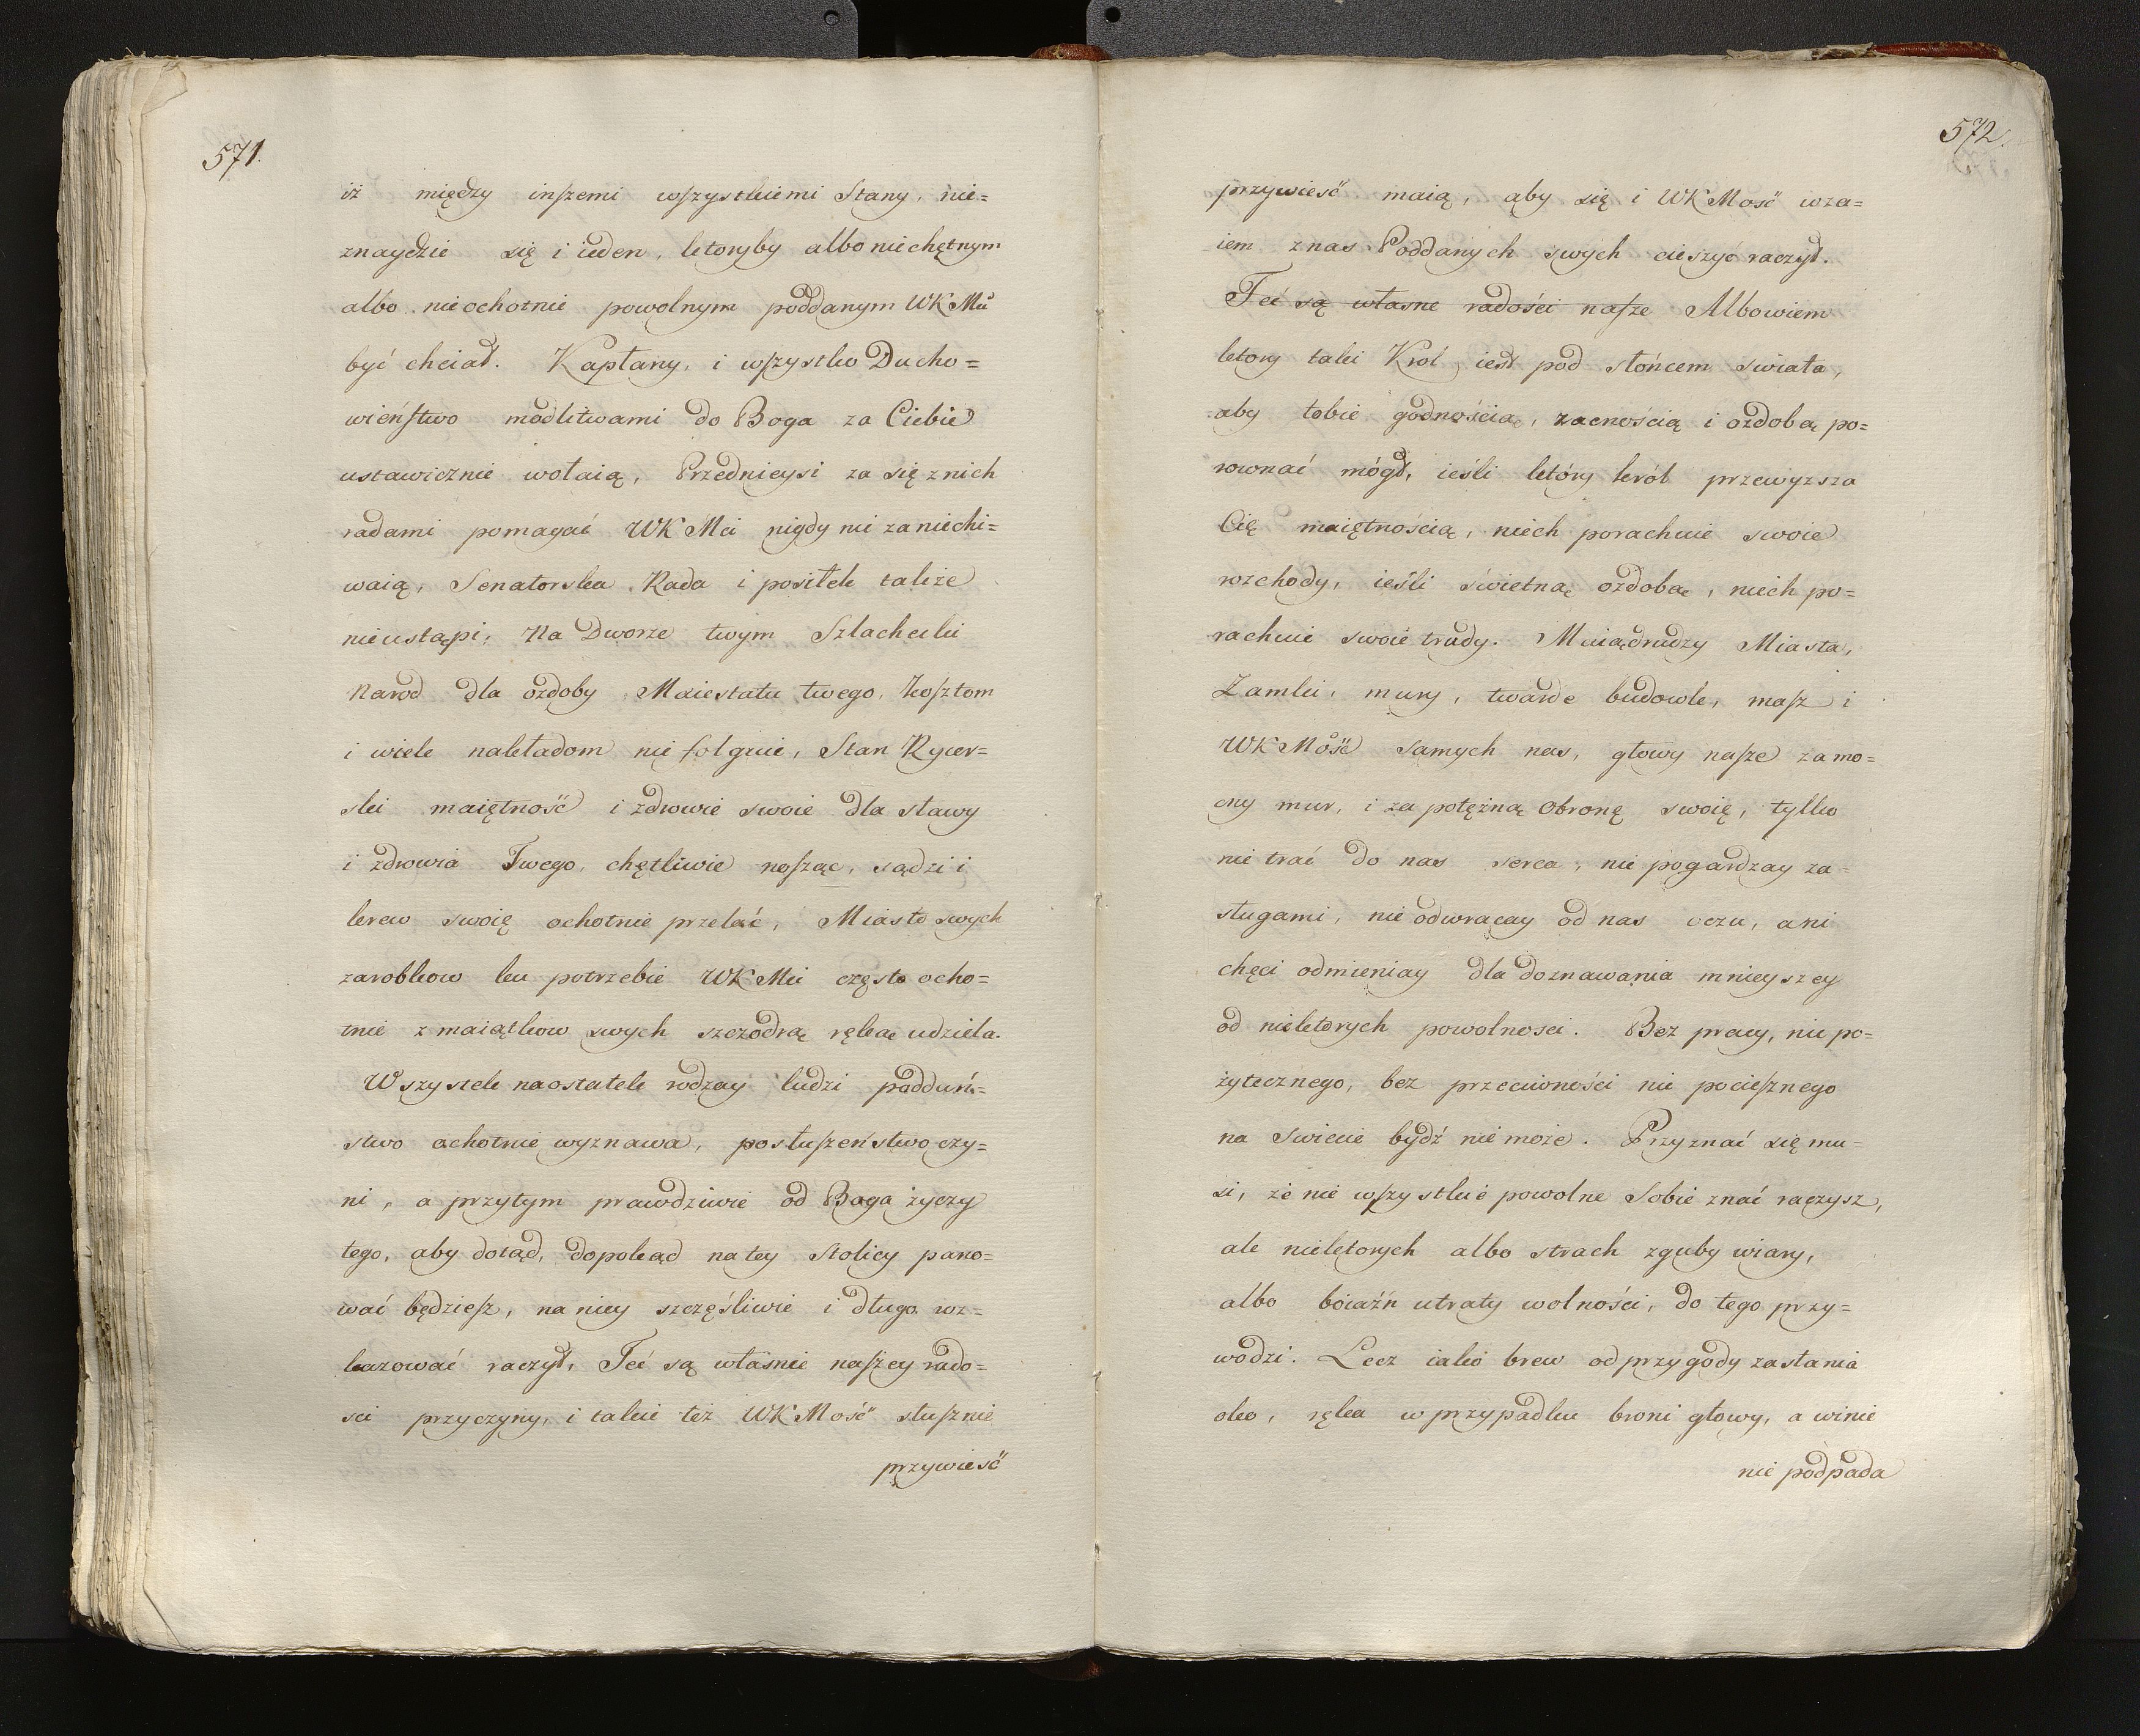 571.
iż między inszemi wszystkiemi Stany, nie=
znaydzie się i ieden, ktoryby albo niechętnym
albo nieochotnie powolnym poddanym WKMci
być chciał. Kapłany, i wszystko Ducho=
wieństwo modlitwami do Boga za Ciebie
ustawicznie wołaią, Przednieysi za się z nich
radami pomagać WKMci nigdy nie zaniechi=
waią, Senatorska Rada i posiłek także
nieustąpi; Na Dworze twym Szlachecki
Narod dla ozdoby Maiestatu twego, kosztom
i wiele nakładom nie folguie, Stan Rycer=
ski maiętność i zdrowie swoie dla sławy
i zdrowia Twego, chętliwie nosząc, sądzi i
krew swoię ochotnie przelać, Miasto swych
zarobkow ku potrzebie WKMci często ocho=
tnie z maiątkow swych szczodrą ręką udziela.
Wszystek naostatek rodzay ludzi poddań=
stwo ochotnie wyznawa, posłuszeństwo czy=
ni, a przytym prawdziwie od Boga życzy
tego, aby dotąd, dopokąd na tey Stolicy pano=
wać będziesz, na niey szczęśliwie i długo roz=
kazować raczył, Teć są własnie naszey rado=
sci przyczyny, i takie też WKMość słusznie
przywieść
572.
przywieść maią, aby się i WKMość wza=
iem z nas Poddanych swych cieszyć raczył.
Teć są własne radości nasze Albowiem
ktory taki Krol iest pod słońcem swiata,
aby tobie godnością, zacnością i ozdobą po=
rownać mógł, ieśli który król przewyzsza
Cię maiętnością, niech porachuie swoie
rozchody, ieśli świetną ozdobą, niech po=
rachuie swoie trudy. Maią drudzy Miasta,
Zamki, mury, twarde budowle, masz i
WKMość samych nas, głowy nasze za mo=
cny mur, i za potężną obronę swoię, tylko
nie trać do nas serca, nie pogardzay za=
sługami, nie odwracay od nas oczu, ani
chęci odmieniay dla doznawania mnieyszey
od niektorych powolnosci. Bez pracy, nic po=
żytecznego, bez przeciwności nic pociesznego
na swiecie bydź nie może. Przyznać się mu=
si, że nie wszystkie powolne Sobie znać raczysz,
ale niektorych albo strach zguby wiary,
albo boiaźń utraty wolności, do tego przy=
wodzi. Lecz iako brew od przygody zasłania
oko, ręka w przypadku broni głowy, a winie
nie podpada